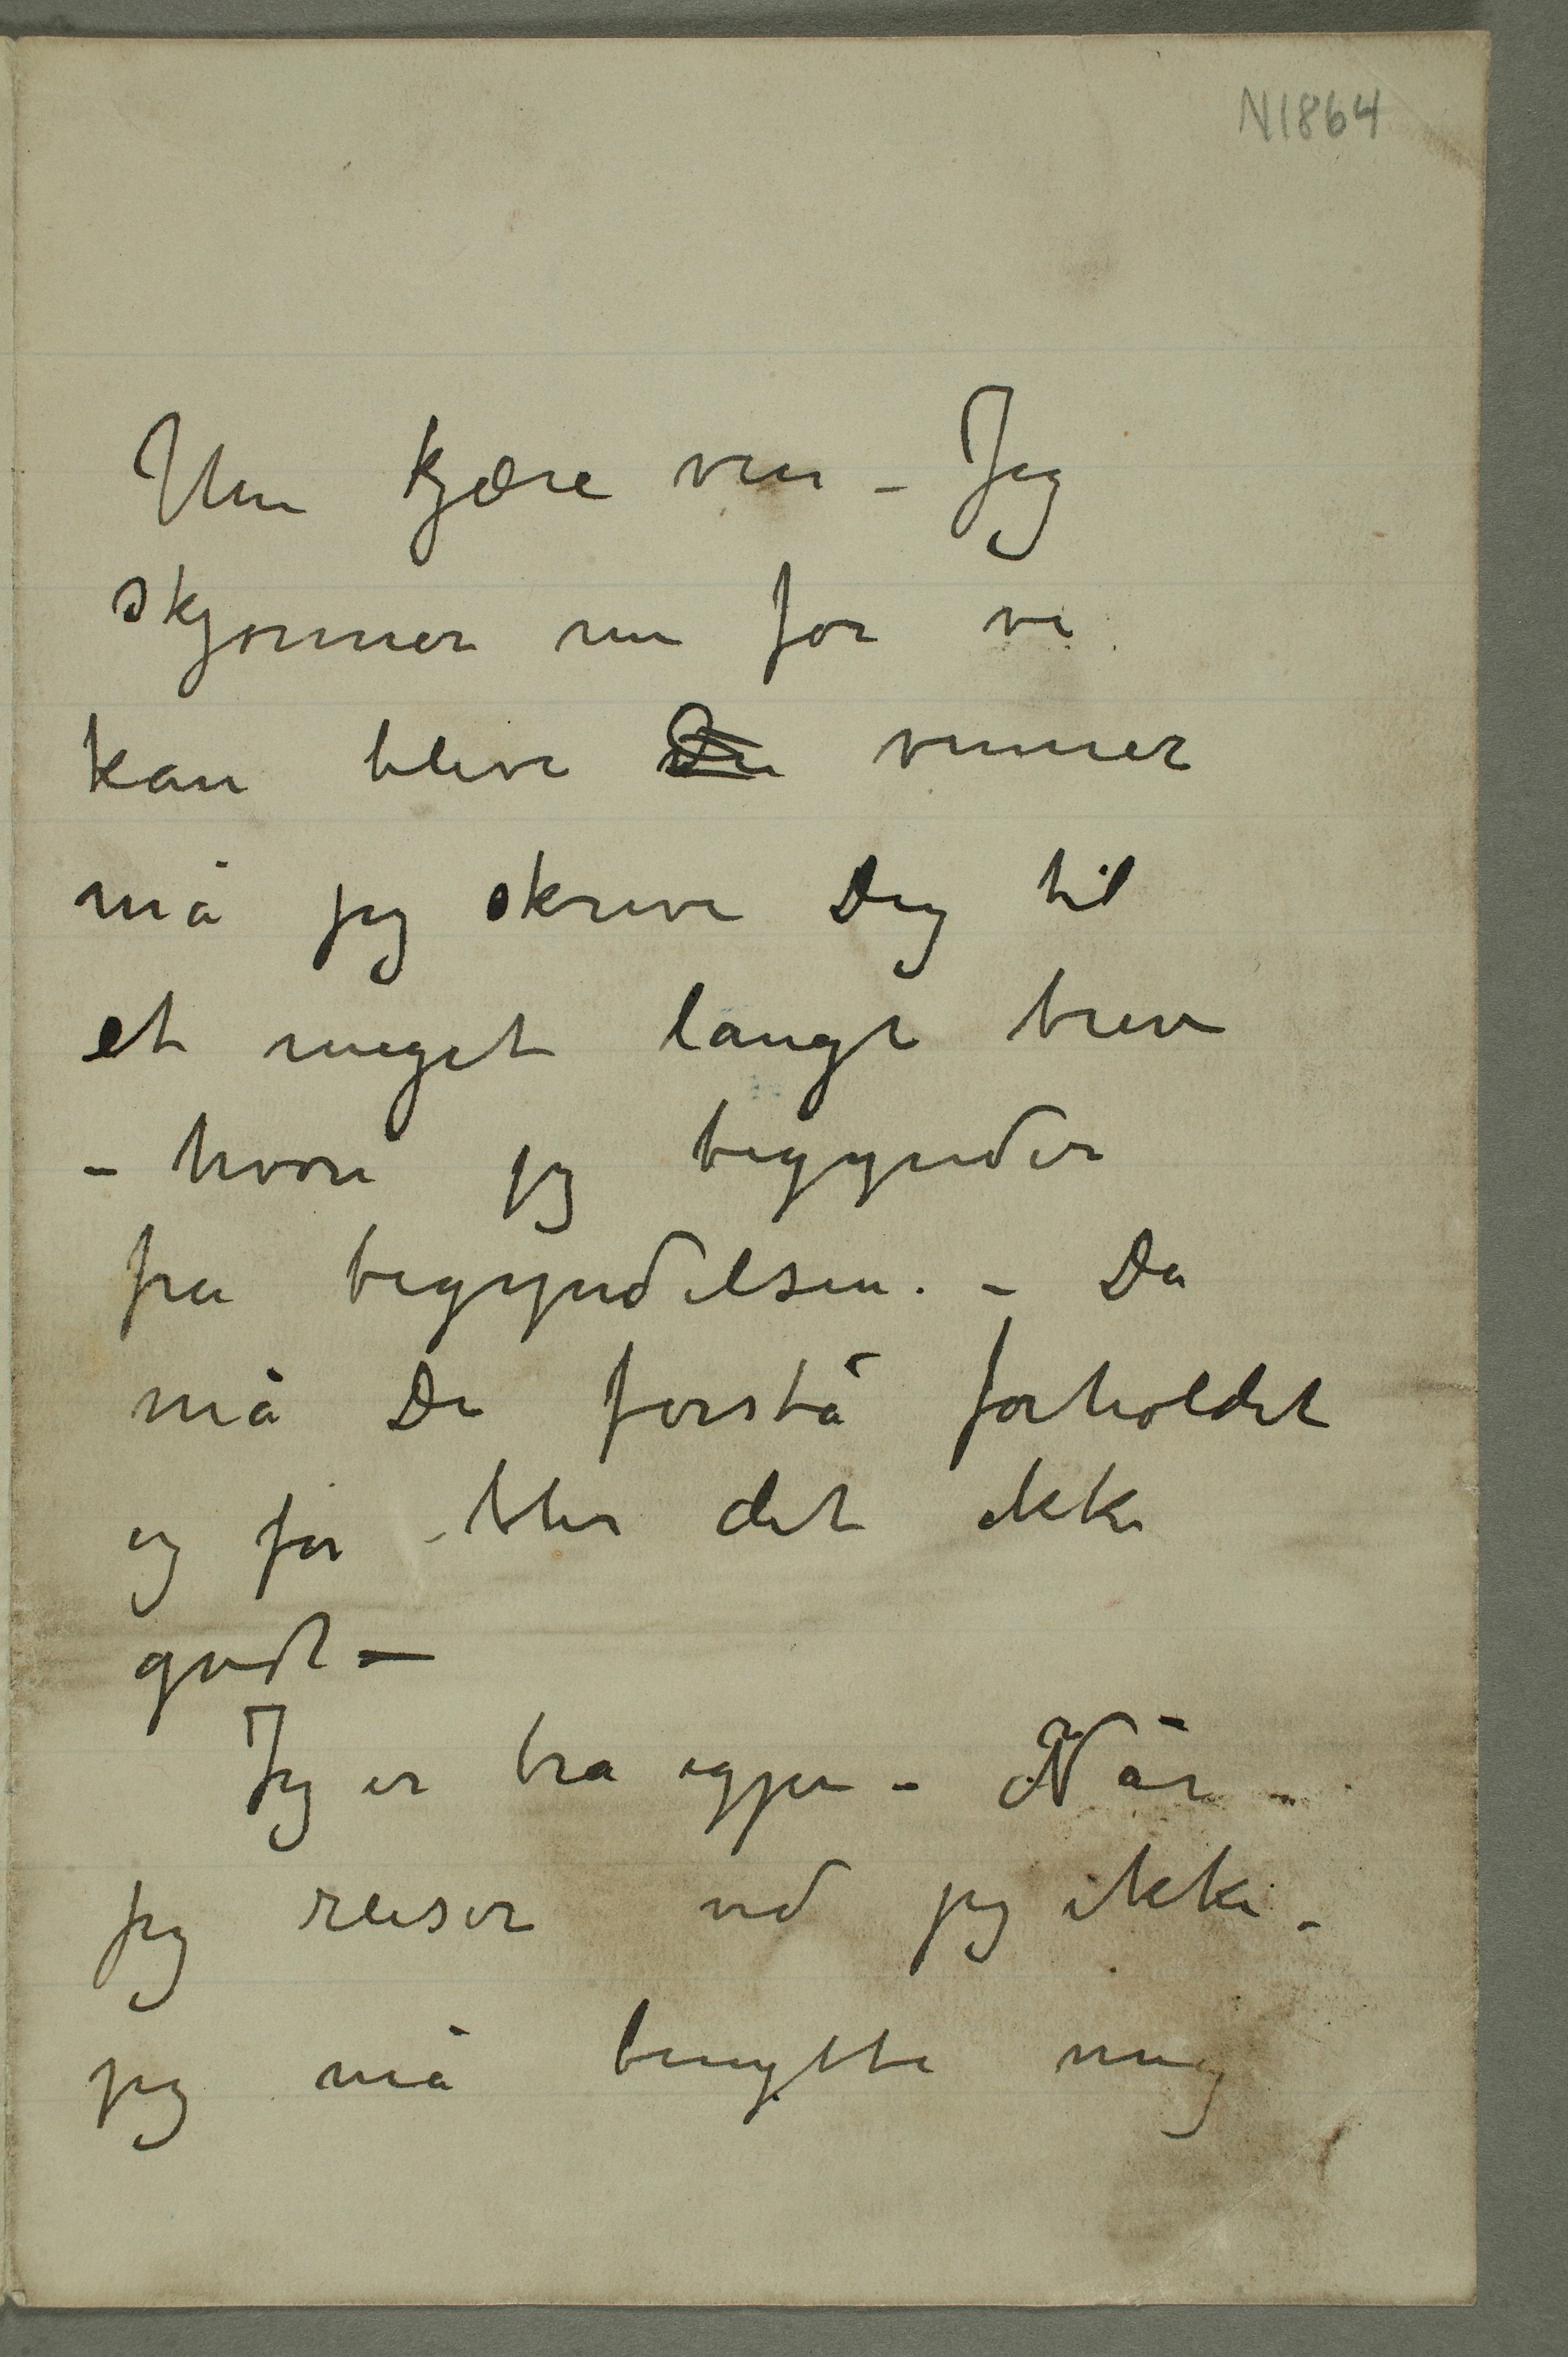 N1864
Min kjære ven – Jeg
skjønner nu før vi
kan blive Du venner
må jeg skrive Dig til
et meget langt brev
– hvori jeg begynder
fra begyndelsen. – Da
må Du forstå forholdet
og før blir det ikke
godt –
Jeg er bra igjen – Når –
jeg reiser ved jeg ikke –
jeg må benytte mig